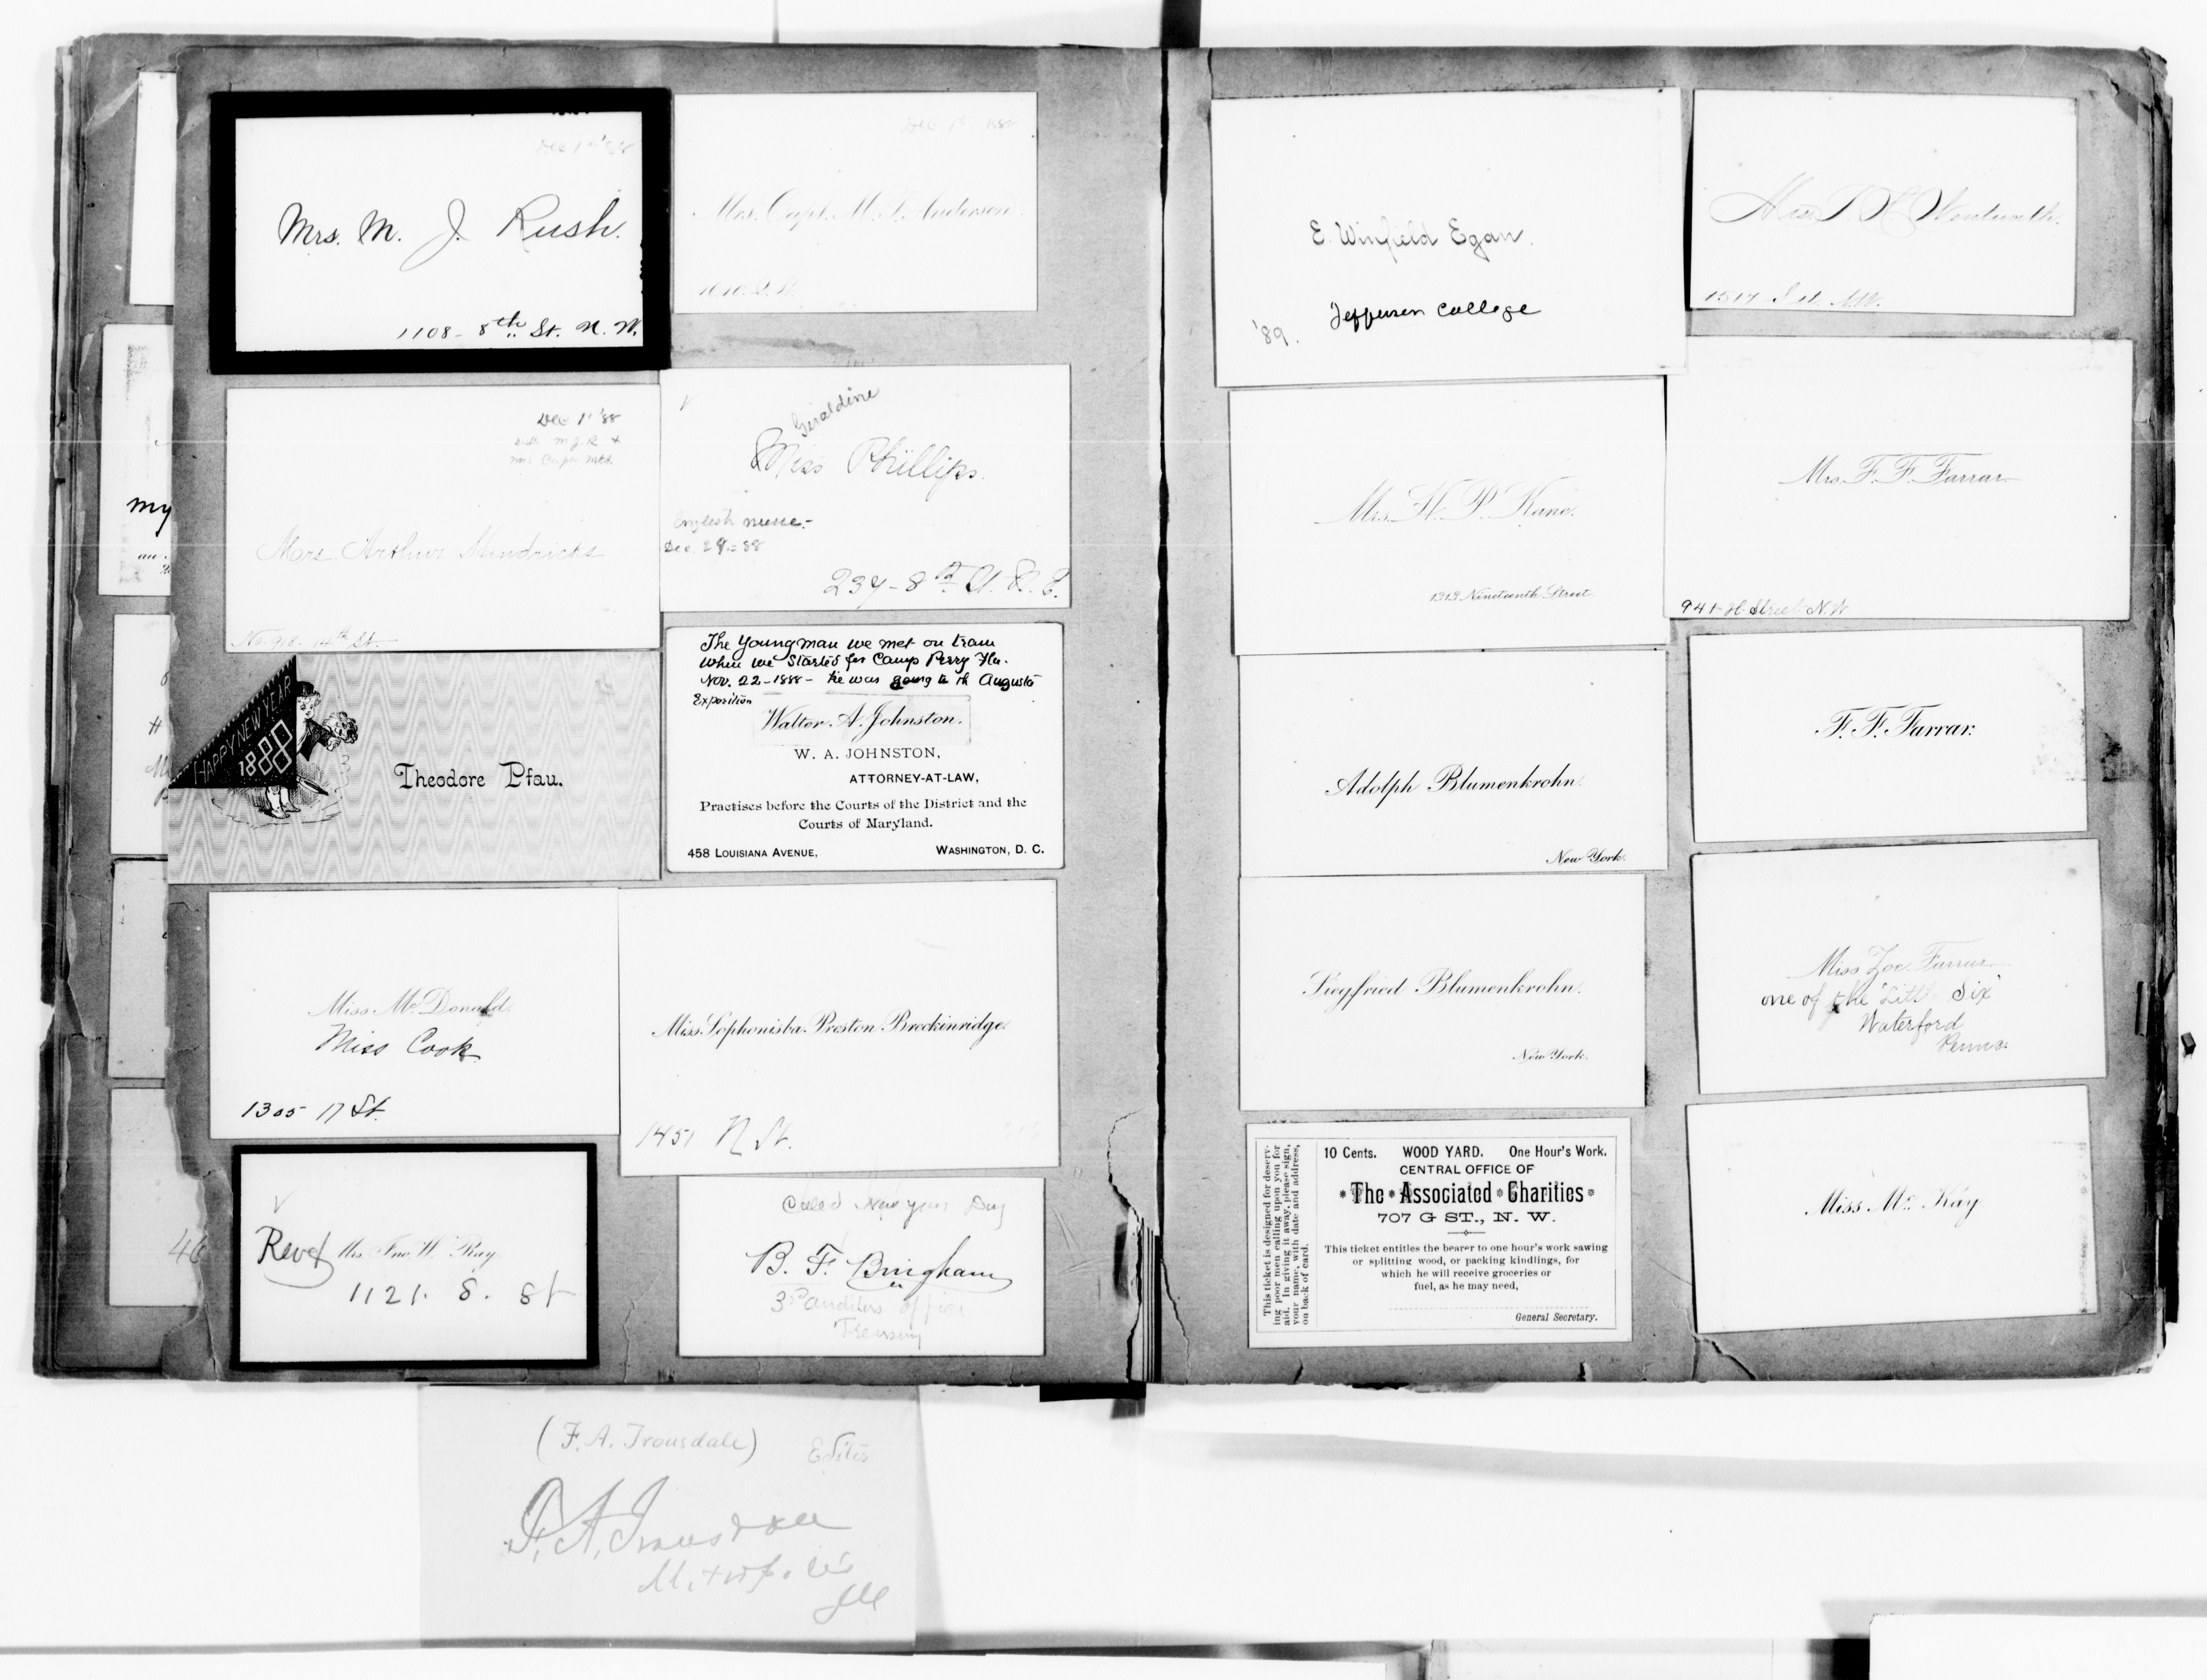 Dec 1st '88
Mrs. M. J. Rush.
1108 - 8th St. N. W.
Mrs. Capt. M. P. Anderson.
Dec 1' '88
Mrs Arthur Hendricks
No. 918. 14th St.
Geraldine
Miss Phillips.
English nurse.-
Dec. 29.=88
237-8th St. S. E.
HAPPY NEW YEAR
1888
Theodore Pfau.
The young man we met on train
when we started for Camp Perry Fla.
Nov. 22-1888- he was going to the Augusta
Exposition
Walter A. Johnston.
W. A. JOHNSTON,
ATTORNEY-AT-LAW,
Practises before the Courts of the District and the
Courts of Maryland.
458 LOUISIANA AVENUE, WASHINGTON, D. C.
Miss McDonald.
Miss Cook
1305 17 St.
Miss Sophonisba Preston Breckinridge.
1451 N St.
Revd Mrs. Jno. W. Ray.
1121. S. St
Called New years Day
B. F. Bingham
3d auditors office
Treasury
46
my
E. Winfield Egan.
Jefferson College
'89.
Wentworth.
Mrs. H. P. Kane.
1313 Nineteenth Street
Mrs. F. F. Farrar
941-H Street N.W
Adolph Blumenkrohn.
New York.
F. F. Farrar.
Siegfried Blumenkrohn.
New York.
Miss Zoe Farrar
one of the "Little Six"
Waterford
Penna.
10 Cents. WOOD YARD. One Hour's Work.
CENTRAL OFFICE OF
The Associated Charities
707 G ST., N. W.
This ticket entitles the bearer to one hour's work sawing
or splitting wood, or packing kindlings, for
which he will receive groceries or
fuel, as he may need,
General Secretary.
This ticket is designed for deserv-
ing poor men calling upon you for
aid. In giving it away, please sign,
your name, with date and address,
on back of card.
Miss McKay
(F. A. Trousdale) Editor
F. A. Trousdale
Metropolis
Ill